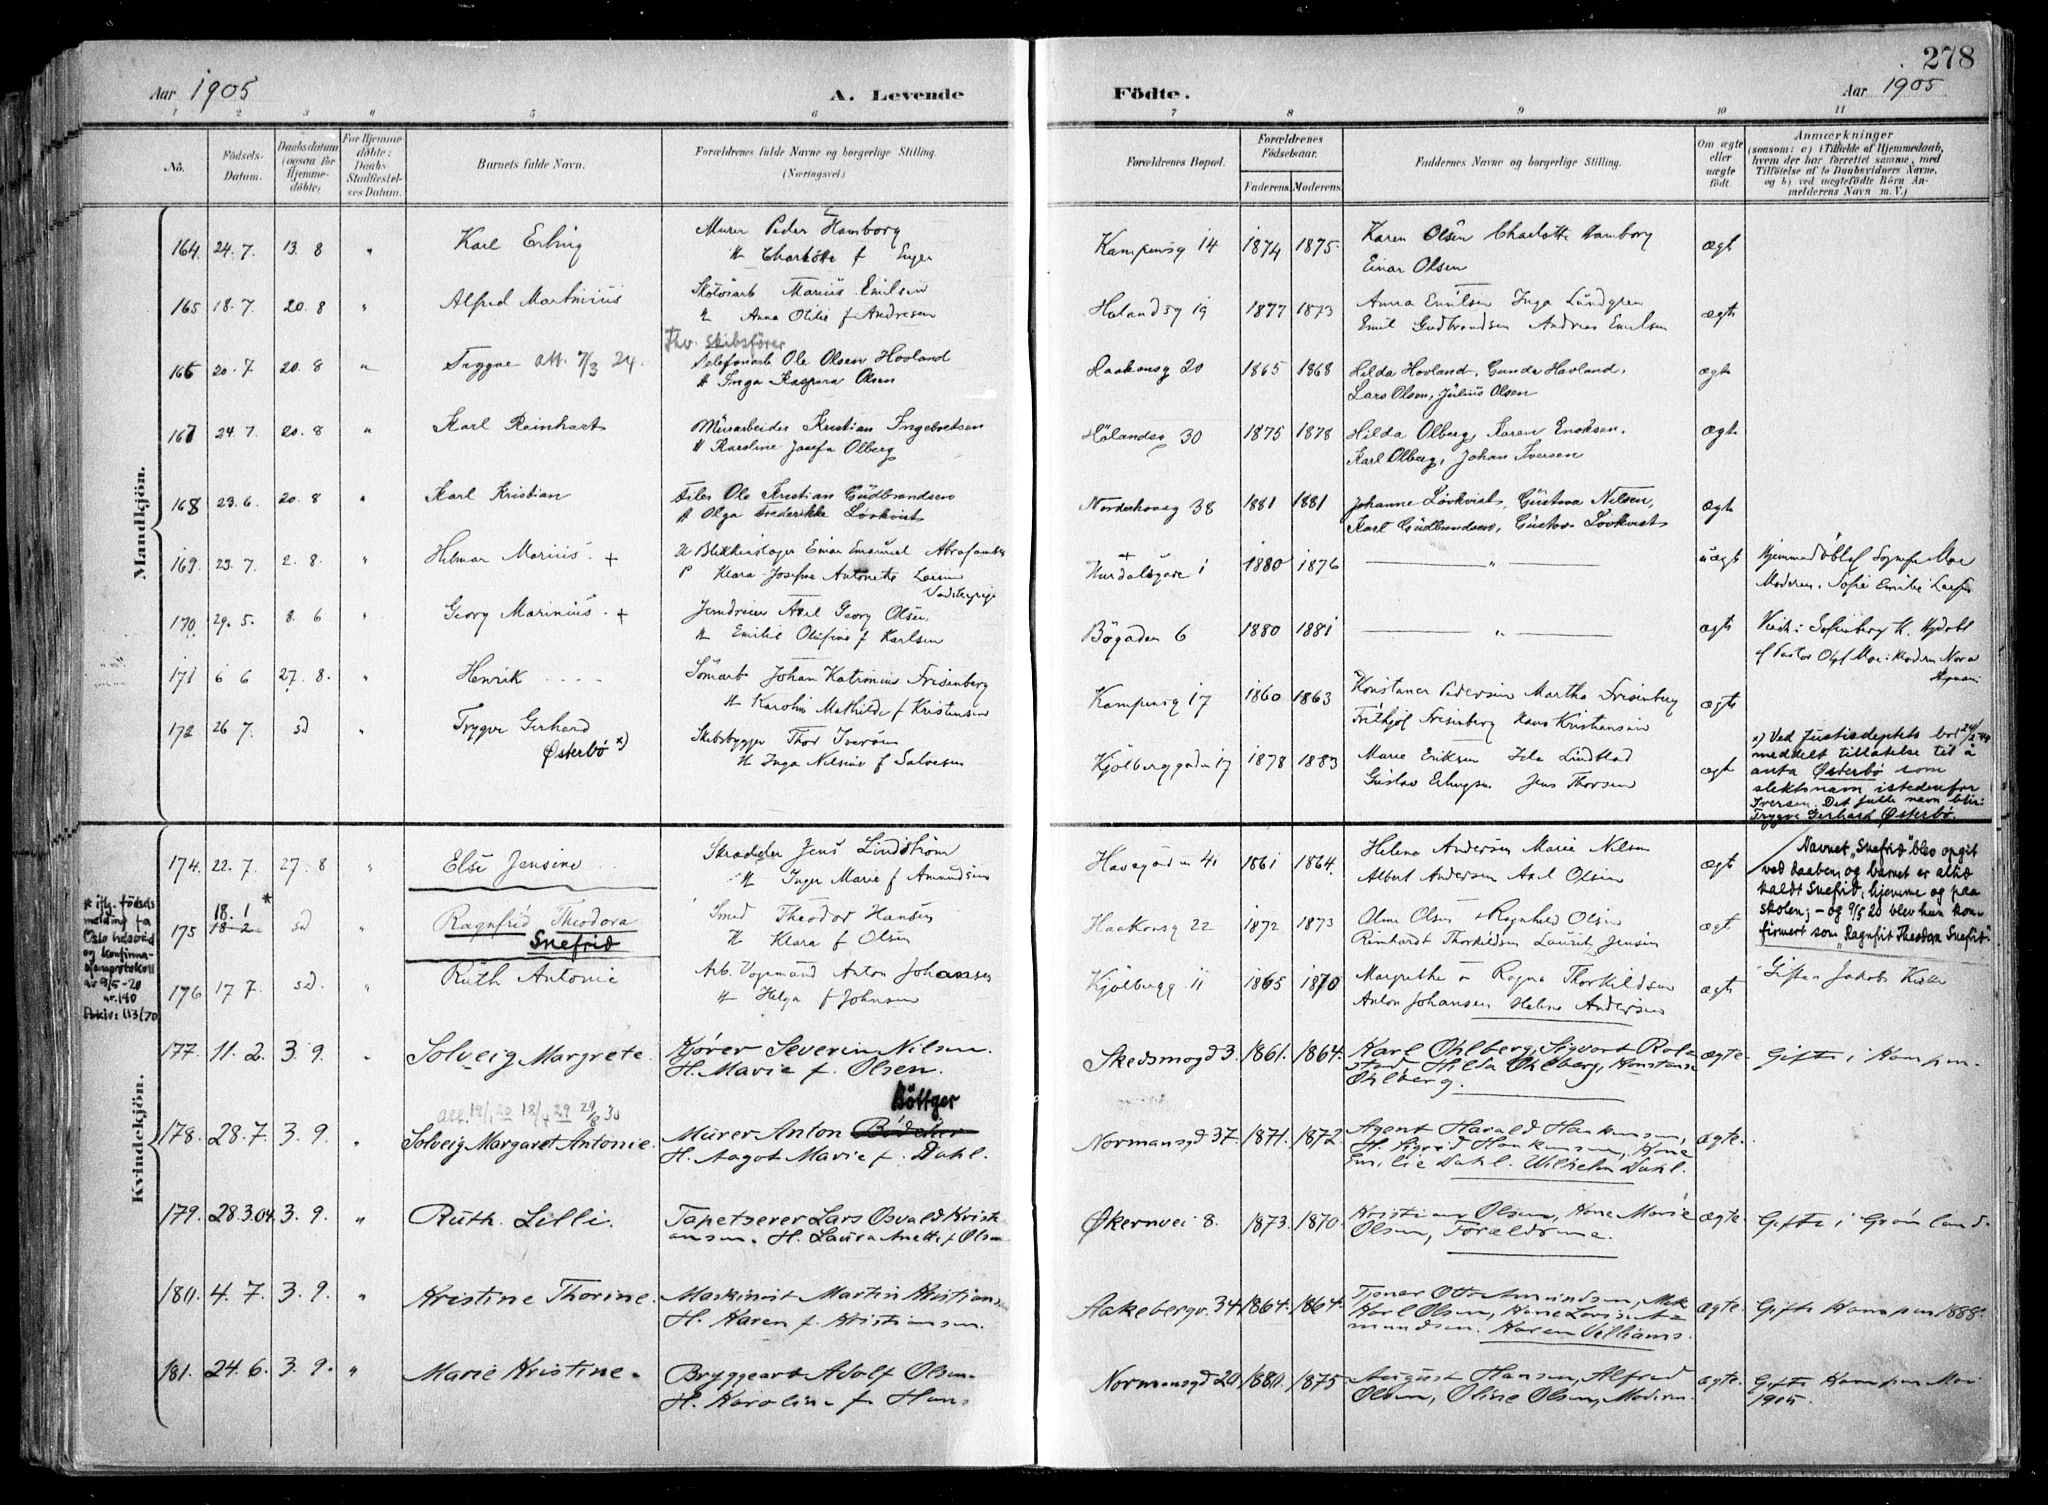 278
Aar 1905
A. Levende
Födte.
Aar 1905
1 2 3 " 5 6 7 8 9 10 11
No.
Födsels-
Datum.
Daabsdatum
(ogsaa for
Hjemme-
döbte)
For Hjemme
döbte:
Daabs-
Stadfæstel-
ses Datum.
Barnets fulde Navn.
Forældrenes fulde Navne og borgerlige Stilling.
(Næringsvei.)
Forældrenes Bopæl.
Forældrenes
Födselsaar.
Faderens. Moderens.
Faddernes Navne og borgerlige Stilling.
Om ægte
eller
uægte
födt.
Anmærkninger
(saasom: a) i Tilfælde af Hjemmedaab,
hvem der har forrettet samme, med
Tilföielse af to Daabsvidners Navne.
og b) ved uægtefödte Börn An-
melderens Navn m.V.)
Mandkjön.
164. 24. 7. 13. 8 " Karl Erling
Murer Peder Hamborg
H. Charlotte f. Enger
Kampensg 14 1874 1875.
Karen Olsen Charlotte Hamborg
Einar Olsen
ægt
165 18. 7. 20. 8 " Alfred Martinius
Marius Emilsen
H. Anna Otilie f. Andresen
Hølandsg 19 1877 1873
Anna Emilsen Inga Lundgren
Emil Gudbrandsen Andreas Emilsen
ægte
Fhv. skibsfører
166 20. 7. 20. 8 " Trygve Att. 7/3 24.
Telefonarb Ole Olsen Hovland
H Inga Kaspara Olsen
Haakonsg 20 1865 1868
Hilda Hovland, Gunda Havland,
Lars Olsen, Julius Olsen
ægte
167 24. 7. 20. 8 " Karl Reinhart
Murarbeider Kristian Ingebretsen
H Karoline Josefa Olberg
Hølandsg 30 1875 1878
Hilda Olberg, Karen Enoksen.
Karl Olberg, Johan Iversen
ægte
168 23. 6. 20. 8 " Karl Kristian
Ole Kristian Gudbrandsen
H Olga Frederikke Lövkvist
Norderhovsg 38 1881 1881
Johanne Lövkvist, Gustava Nilsen,
Karl Gudbrandsen, Gustav Lövkvist
ægte
169. 23. 7. 2. 8. " Hilmar Marius. +
Blikkenslager Einar Emanuel Abrahamsen
P Klara Josefine Antonette Larsen
Hurdalsgade 1 1880 1876
"
uægt
Hjemmedöbt af Sognepr Moe
Moderen: Sofie Emilie Larsen
170. 29. 5. 8. 6 " Georg Marinius. +
Jerndreier Axel Georg Olsen
H. Emilie Olufine f Karlsen
Bögaden 6 1880 1881
"
ægte
171 6 6 27. 8. " Henrik
Johan Katrinius Frisenberg
H Karoline Mathilde f Kristensen
Kampensg 17 1860 1863
Konstance Pedersen Martha Frisenberg
Frithjof Frisenberg Hans Kristiansen
ægte
172 26 7. sd " Trygve Gerhard
Østerbø x)
Skibsbygger Thor Iversen
H. Inga Nilsine f Salvesen
Kjölberggaden 17 1878 1883
Marie Eriksen Ida Lindblad
Gustav Erlingsen Jens Thorsen
ægt
x) Ved Justisdeptets brev 24/2-44
meddelt tillatelse til å
anta Østerbø som
slektsnavn istedenfor
Iversen. Det fulle navn blir:
Trygve Gerhard Østerbø.
Kvindekjön.
174. 22. 7. 27. 8 " Else Jensine
Skrædder Jens Lindström
H Inger Marie f Amundsen
Havegaden 41 1861 1864.
Helene Andersen Marie Nilsen
Albert Andersen Axel Olsen
ægt
Navnet "Snefrid" blev opgit
ved daaben og barnet er altid
kaldt Snefrid, hjemme og paa
skolen; - og 9/5 20 blev hun kon-
firmert som "Ragnfrit Theodora Snefrid".
* iflg. fødsels
melding fra
Oslo helseråd
og konfirma-
sjonsprotokoll
av 9/5-20
nr. 140
Arkiv: 113/70
175 18. 1 * 18-2 sd " Ragnfrid Theodora
Snefrid
Smed Theodor Hansen
H Klara f Olsen
Haakonsg 22 1872 1873
Olme Olsen Ragnhild Olsen
Reinhardt Thorkildsen Laurits Jensen
ægt
176 17 7. sd. " Ruth Antonie
Arb. Anton Johansen
H Helga f Johnsen
Kjölbergg 11 1865 1870
Margrethe Ragna Thorkildsen
Anton Johansen Helene Andersen
ægte
Gifte Jakobs Kirke
177. 11. 2. 3. 9. " Solveig Margrete.
Kjører Severin Nilsen.
H. Marie f. Olsen.
Skedsmogd 3. 1861. 1864.
Karl Ohlberg, Sigvart Rol-
stad, Hilda Ohlberg, Konstanse
Ohlberg.
ægte.
Gifte i Kampen.
Att. 19/1 20 18/4 29 29/8 30
178. 28. 7. 3. 9. " Solveig Margaret Antonie.
Murer Anton Bödcher Böttger
H. Aagot Marie f. Dahl.
Normansgd 37. 1871. 1872.
Agent Harald Haakensen,
H. Sigrid Haakensen, Kone
Emilie Dahl. Wilhelm Dahl.
ægte.
179. 28. 3. 04. 3. 9. " Ruth Lilli.
Tapetserer Lars Osvald Kristi-
ansen. H. Laura Anette f. Olsen
Økernvei 8. 1873. 1870.
Kristian Olsen, Kone Marie
Olsen, Forældrene.
ægte.
Gifte i Grønland.
180. 4. 7. 3. 9. " Kristine Thorine.
Maskinist Martin Kristians
H. Karen f. Kristiansen.
Aakebergv. 34 1864. 1864.
Tjener Otto Amundsen, Mek
Karl Olsen, Kone Lovise A-
mundsen. Karen Villiams.
ægte.
Gifte Kampen 1888.
181. 24. 6. 3. 9. " Marie Kristine.
Bryggearb Adolf Olsen.
H. Karoline f. Hans
Normansgd 20 1880. 1875
August Hansen, Alfred
Olsen, Oline Olsen, Moderen.
ægte.
Gifte Kampen Mai
1905.